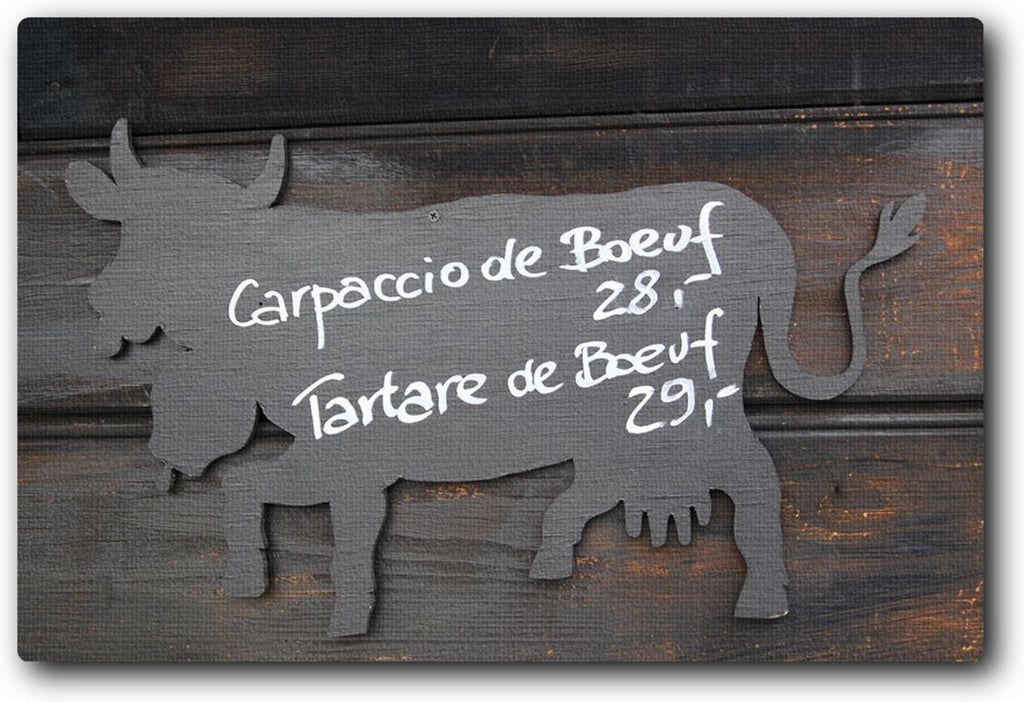 Carpaccio de Boeuf
28,-
Tartare de Boeuf
29,-